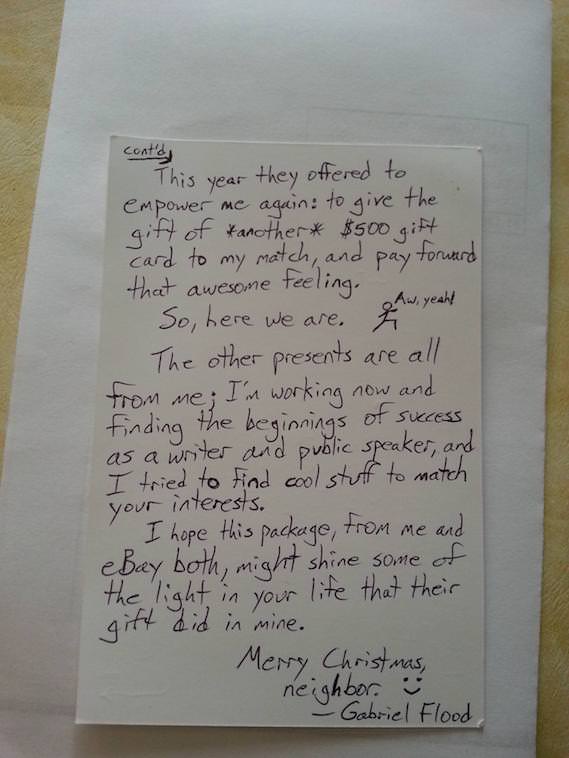 cont'd
This year they offered to
empower me again: to give the
gift of *another* $500 gift
card to my match, and pay forward
that awesome feeling.
So, here we are. Aw, yeah!
The other presents are all
from me; I'm working now and
finding the beginnings of success
as a writer and public speaker, and
I tried to find cool stuff to match
your interests.
I hope this package, from me and
eBay both, might shine some of
the light in your life that their
gift did in mine.
Merry Christmas,
neighbor. :)
— Gabriel Flood